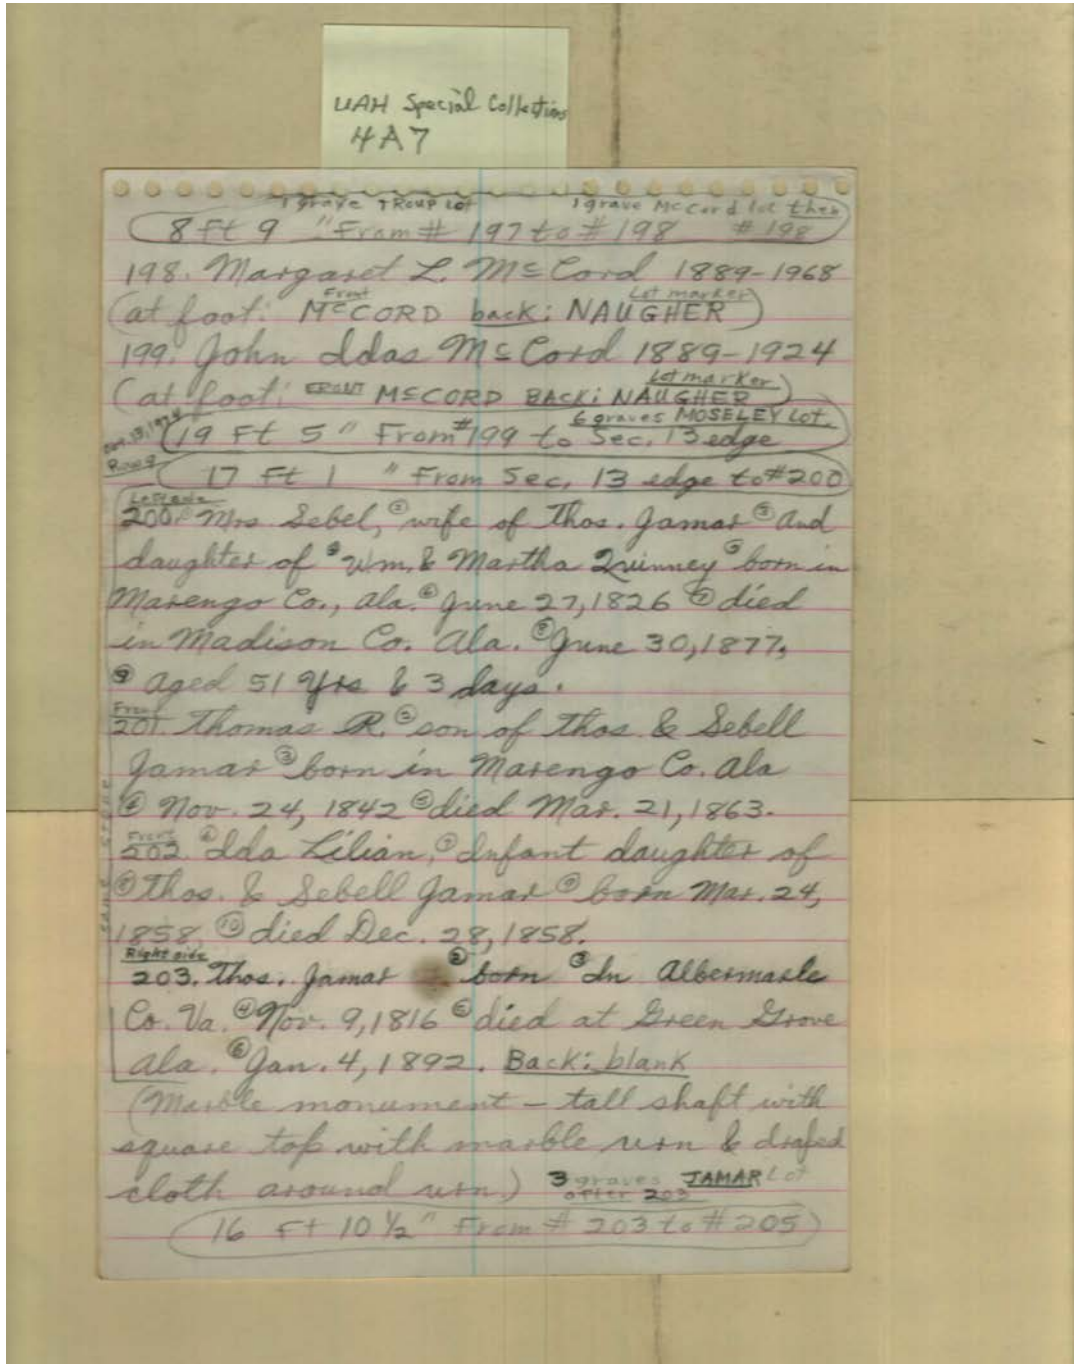 UAH Special Collections
4A7
1 grave TROUP LOT 1 grave McCord lot then
8 Ft 9 " From # 197 to # 198 # 198
198. Margaret L. McCord 1889-1968
Front Lot marker
(at foot: McCORD back: NAUGHER)
199. John Idas McCord 1889-1924
Lot marker
(at foot: FRONT McCORD BACK: NAUGHER)
6 graves MOSELEY LOT.
19 Ft 5 " From #199 to Sec. 13 edge
Row 9
17 Ft 1 " From Sec. 13 edge to #200
Left side
200. Mrs. Sebel, ② wife of Thos. Jamar ③ And
daughter of ④ Wm. & Martha Quinney ⑤ born in
Marengo Co., Ala. ⑥ June 27, 1826 ⑦ died
in Madison Co. Ala. ⑧ June 30, 1877,
⑨ Aged 51 yrs & 3 days.
Front
201. Thomas R. ② son of Thos. & Sebell
Jamar ③ born in Marengo Co. Ala
④ Nov. 24, 1842 ⑤ died Mar. 21, 1863.
Front
202. ⑥ Ida Lilian, ⑦ Infant daughter of
⑧ Thos. & Sebell Jamar ⑨ born Mar. 24,
1858, ⑩ died Dec. 28, 1858.
SAME STONE
Right side
203. Thos. Jamar ② born ③ In Albermarle
Co. Va. ④ Nov. 9, 1816 ⑤ died at Green Grove
Ala. ⑥ Jan. 4, 1892. Back: blank
(Marble monument - tall shaft with
square top with marble urn & draped
cloth around urn.) 3 graves JAMAR Lot
after 203
16 Ft 10 ½ " From # 203 to # 205